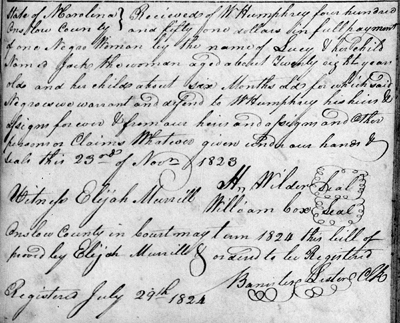 State of N Carolina } Recieved of W Humphrey four hundred
Onslow County } and fifty one dollars in full payment
of one Negro Woman by the name of Lucy & her child
Named Jack the woman aged about Twenty eight years
old and her child about six Months old for which said
Negroes we warrant and defend to W Humphrey his heirs &
assigns for ever & from our heirs and assigns and Other
person or Claims Whatever given under our hands &
seals this 23rd of Novr 1823
Hn Wilder Seal
Witness Elijah Murrill
William Cox Seal
Onslow County in Court may term 1824 this bill of
proved by Elijah Murrill & ordered to be Registered
Bannister Lester Clk
Registered July 29th 1824